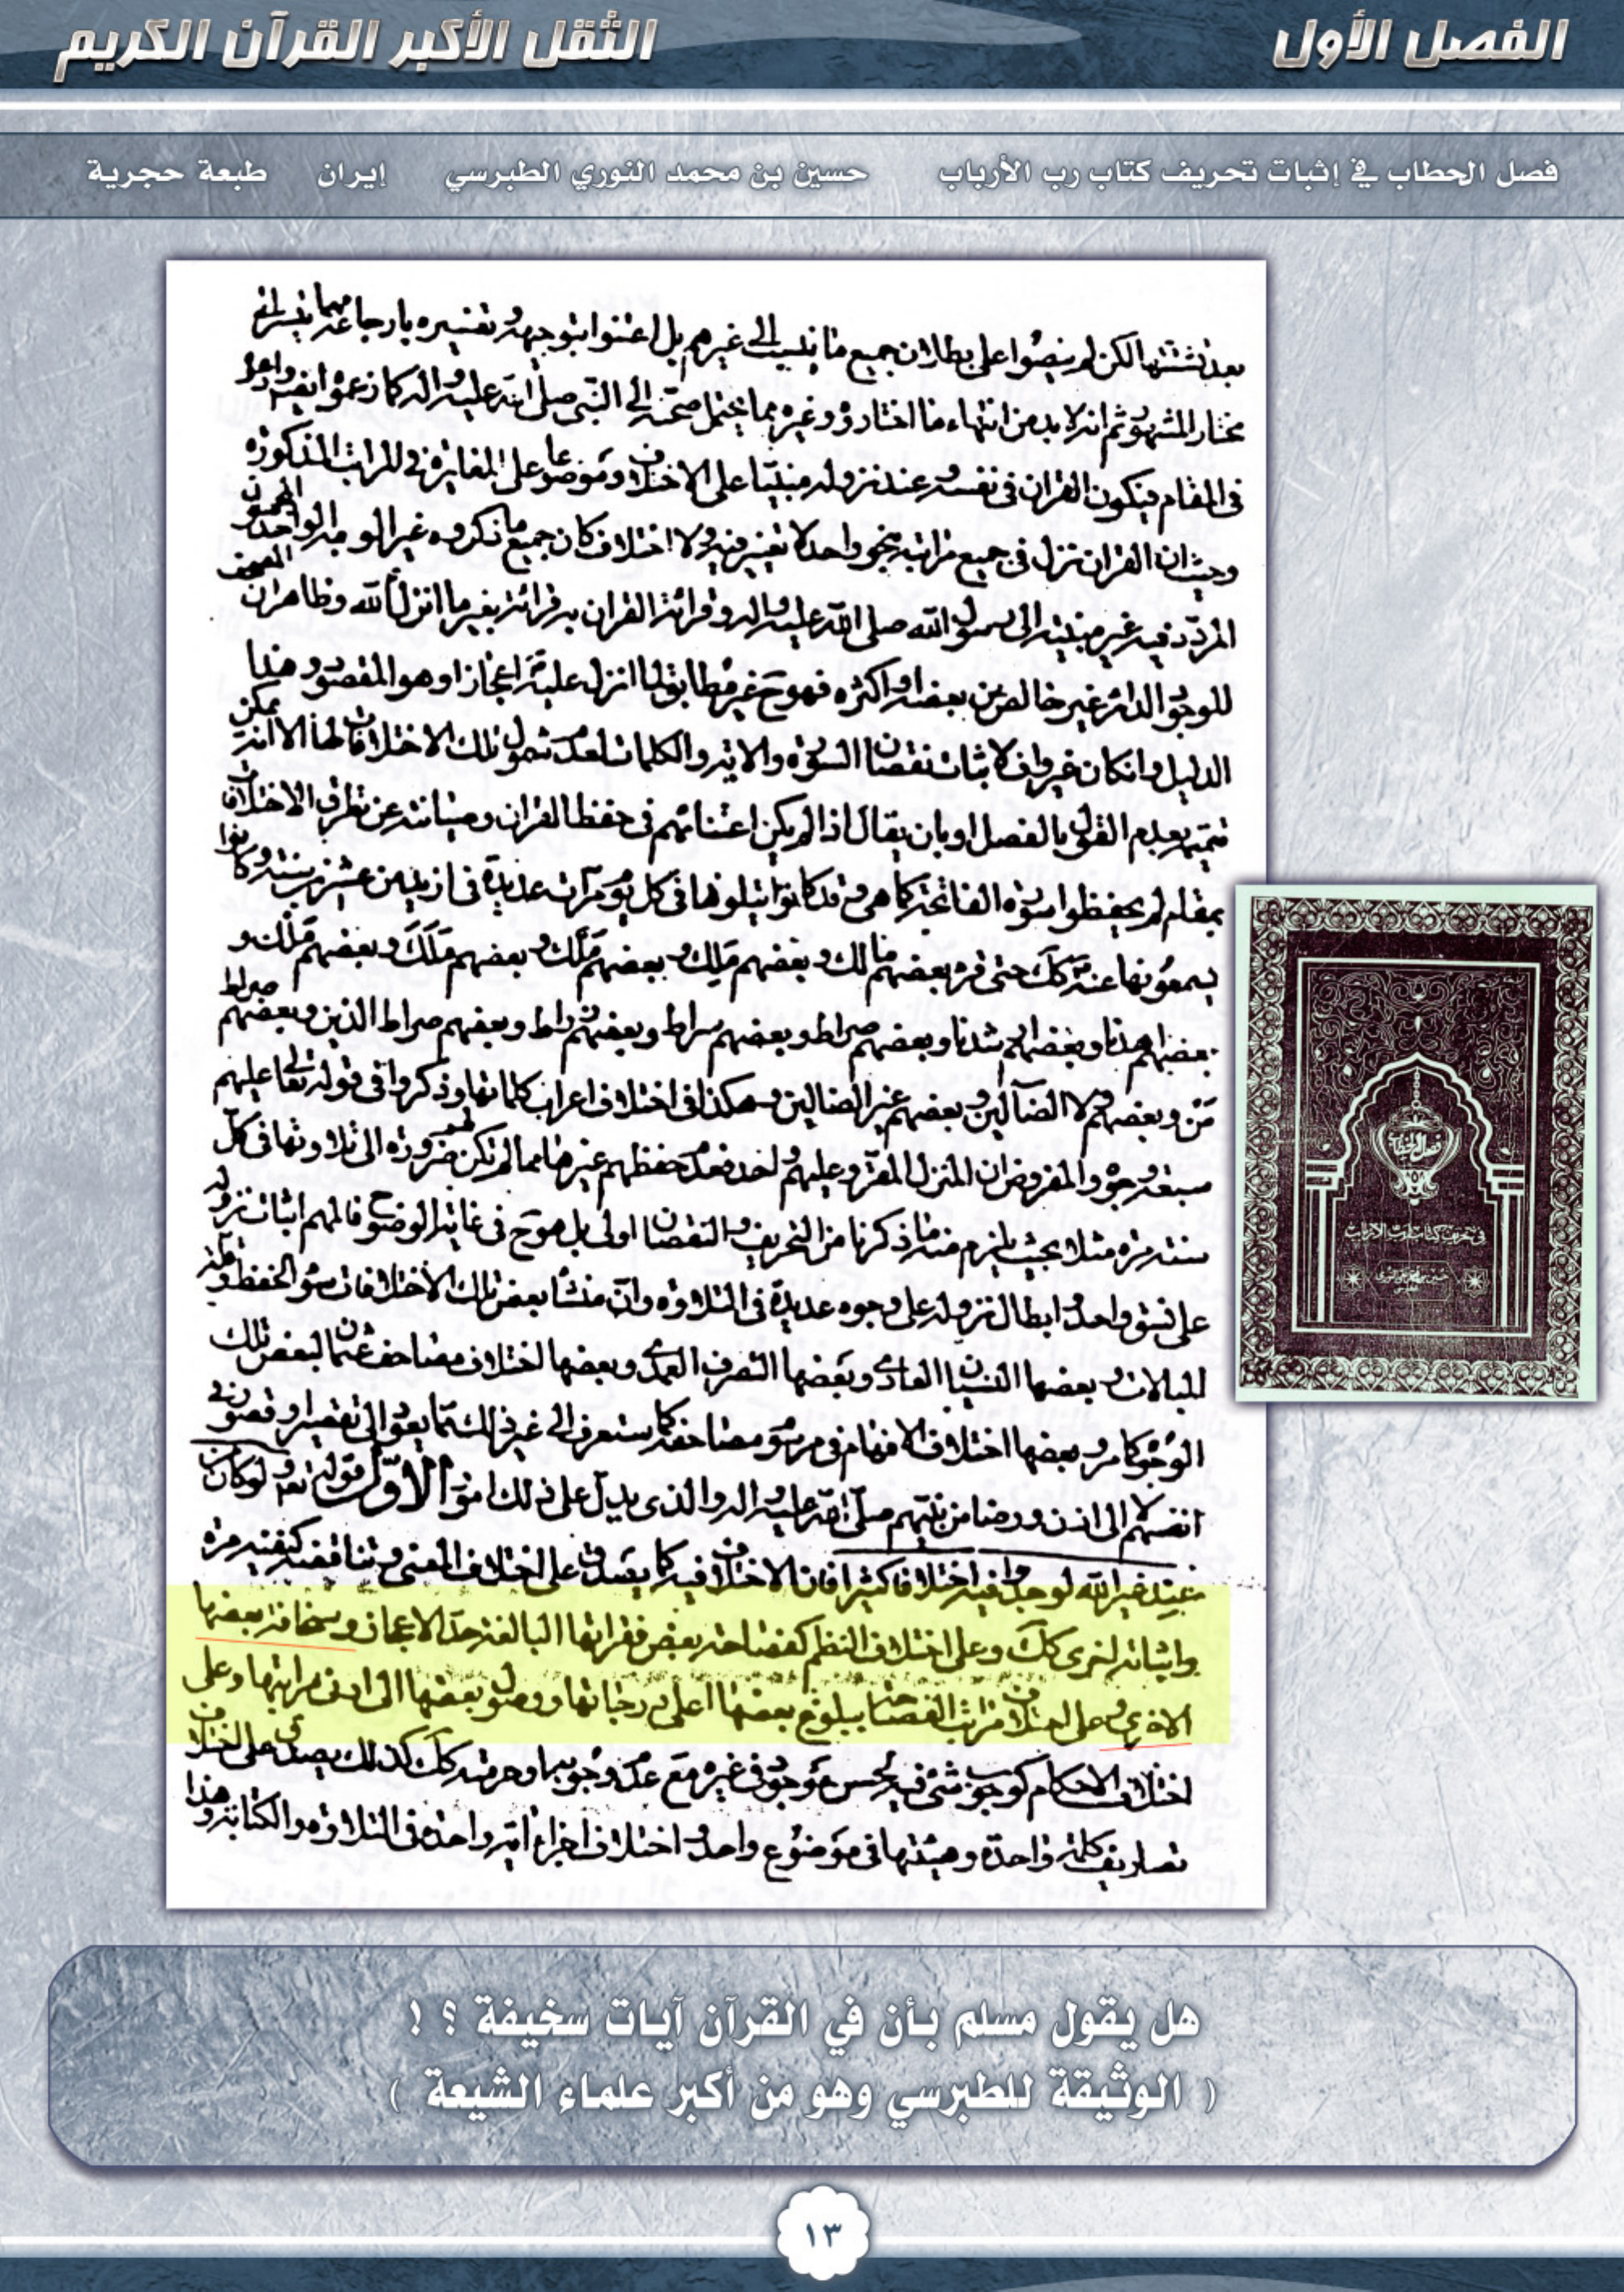 الفصل الأول
الثقل الأكبر القرآن الكريم
فصل الخطاب في إثبات تحريف كتاب رب الأرباب حسين بن محمد النوري الطبرسي إيران طبعة حجرية
بعد تشتتها لكن لم ينصوا على بطلان جميع ما ينسب إلى غيرهم بل اعتنوا بتوجيهه وتفسيره
مختار المشهور ثم انه لا بد من انتهاء ما اختاروه وغيره مما يحتمل صحته الى النبي صلى الله عليه واله كما زعموا
في المقام فيكون القران في نفسه وعند نزوله مبنيا على الاختلاف وموضوعا على المغايرة في المراتب المذكورة
وحيث ان القران نزل في جميع مراتبه بنحو واحد لا تغيير فيه ولا اختلاف كان جميع ما ذكروه غير الوجه الواحد
المردد فيه غير منتهية الى رسول الله صلى الله عليه واله وقرائة القران به قرائة بغير ما انزل الله وظاهر ان المصحف
الموجود الدائر غير خالص عن بعضه او اكثره فهو ح غير مطابق لما انزل عليه ص اعجازا وهو المقصود وهذا
الدليل وان كان غير واف لاثبات نقصان السورة والاية والكلمات لعدم شمول تلك الاختلافات لها الا انه يمكن
تتميمه بعدم القول بالفصل او بان يقال اذا لم يكن اعتنائهم في حفظ القران وصيانته عن تطرق الاختلاف
بمقام لم يحفظوا سورة الفاتحة كما هي وقد كانوا يتلونها في كل يوم مرات عديدة في ازيد من عشرين سنة وكانوا
يسمعونها عنه ص كك حتى قرء بعضهم مالك وبعضهم ملك وبعضهم ملك وبعضهم ملك وبعضهم ملاك و
بعضهم اهدنا وبعضهم ارشدنا وبعضهم صراط وبعضهم سراط وبعضهم زراط وبعضهم صراط الذين وبعضهم صراط
من وبعضهم ولا الضالين وبعضهم غير الضالين وهكذا في اختلاف اعراب كلماتها وذكروا في قوله تعالى عليهم
سبعة وجوه والمفروض ان المنزل المقرو عليهم واحد فعدم حفظهم غيرها مما لم تكن لهم ضرورة الى تلاوتها في كل
سنة مرة مثلا بحيث يلزم منه ما ذكرنا من التحريف والنقصان اولى بل هو ح في غاية الوضوح فالمهم اثبات نزوله
على نسق واحد وابطال نزوله على وجوه عديدة في التلاوة وان منشأ بعض تلك الاختلافات سوء الحفظ وقلة
المبالات وبعضها النسيان العادي وبعضها التصرف العمدي وبعضها اختلاف مصاحف عثمان لبعض تلك
الوجوه كما مر وبعضها اختلاف الافهام في رسوم مصاحفه كما ستعرف الى غير ذلك مما يعود الى تقصير او قصور في
انفسهم لا الى اذن ورضا من نبيهم صلى الله عليه واله والذي يدل على ذلك امور الاول قوله تعالى ولو كان
من عند غير الله لوجدوا فيه اختلافا كثيرا فان الاختلاف فيه كما يصدق على اختلاف المعنى وتناقضه كنفيه مرة
واثباته اخرى كك وعلى اختلاف النظم كفصاحة بعض فقراتها البالغة حد الاعجاز وسخافة بعضها
الاخرى وعلى اختلاف مراتب الفصاحة ببلوغ بعضها اعلى درجاتها ووصول بعضها الى ادنى مراتبها وعلى
اختلاف الاحكام كوجوب شيء فيه لحسن موجود في غيره مع عدم وجوبه او حرمته كك كذلك يصدق على اختلاف
تصاريف كلمة واحدة وهيئتها في موضوع واحد واختلاف اجزاء اية واحدة في التلاوة والكتابة وهذا
فصل الخطاب
في تحريف كتاب رب الأرباب
هل يقول مسلم بأن في القرآن آيات سخيفة ؟ !
( الوثيقة للطبرسي وهو من أكبر علماء الشيعة )
١٣